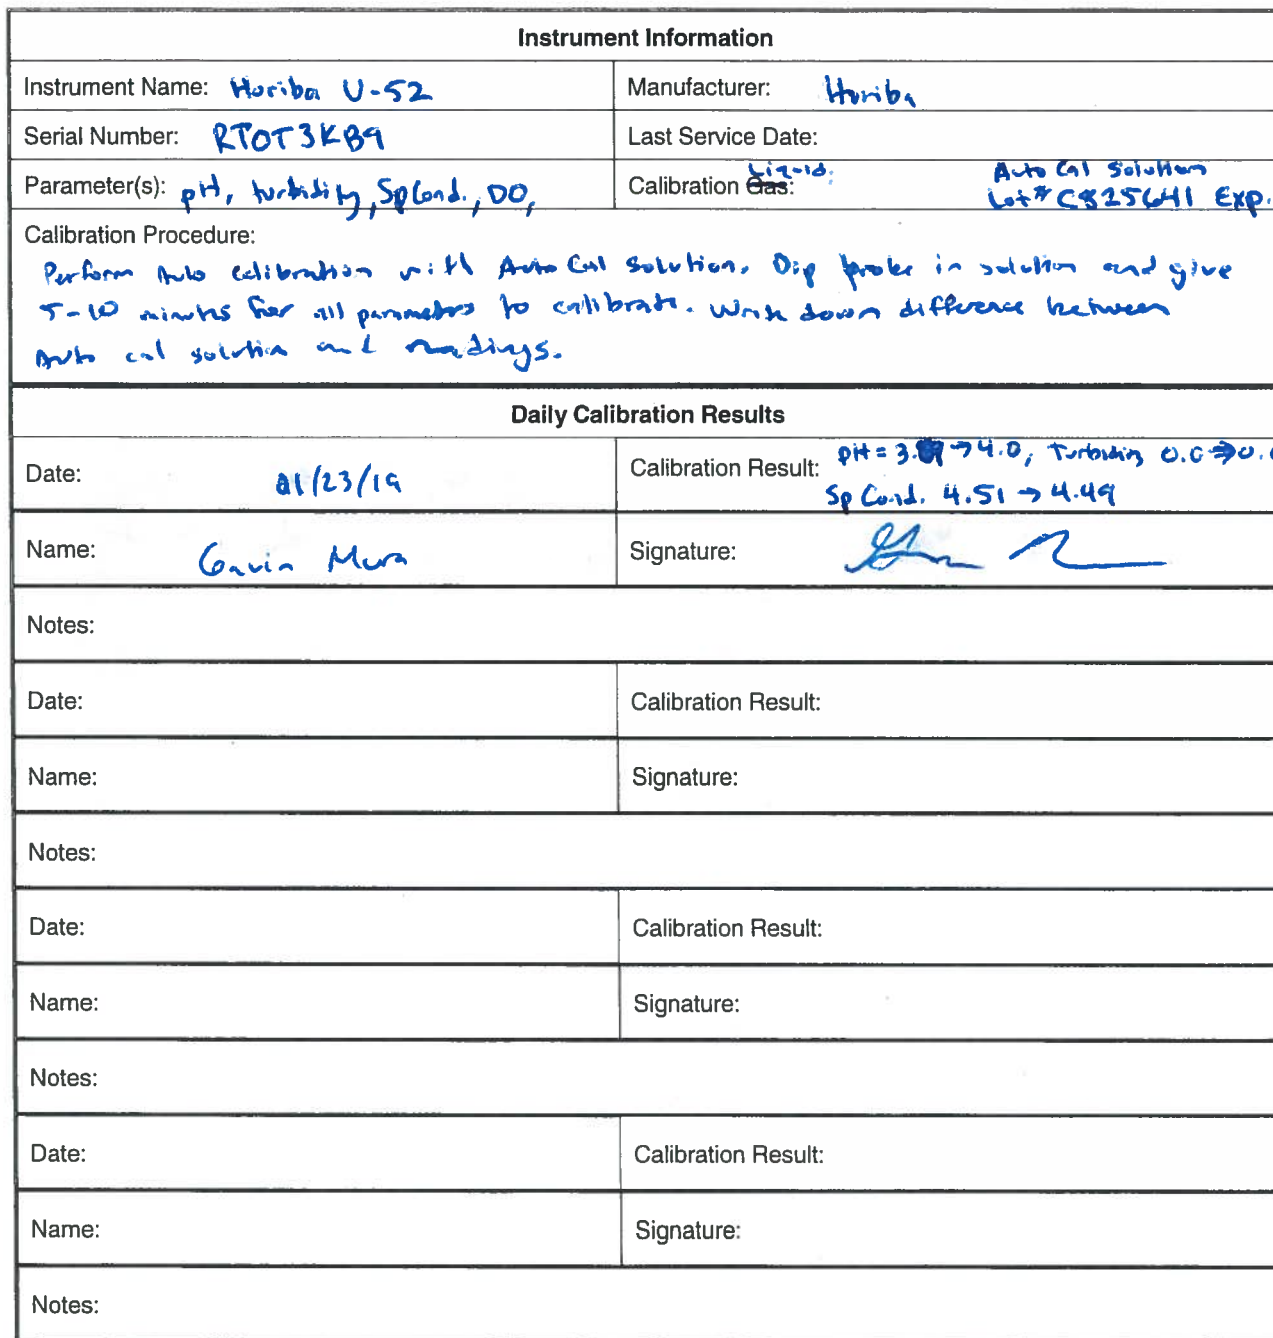 Instrument Information
Instrument Name: Horiba U-52
Manufacturer: Horiba
Serial Number: RTOT3KB9
Last Service Date:
Parameter(s): pH, turbidity, SpCond., DO,
Calibration Gas: Liquid: Auto Cal Solution
Lot# C825641 Exp.
Calibration Procedure:
Perform Auto calibration with Auto Cal Solution. Dip probe in solution and give
5-10 minutes for all parameters to calibrate. Write down difference between
Auto cal solution and readings.
Daily Calibration Results
Date: 01/23/19
Calibration Result: pH = 3. → 4.0, Turbidity 0.0 → 0.
Sp Cond. 4.51 → 4.49
Name: Gavin Mura
Signature:
Notes:
Date:
Calibration Result:
Name:
Signature:
Notes:
Date:
Calibration Result:
Name:
Signature:
Notes:
Date:
Calibration Result:
Name:
Signature:
Notes: